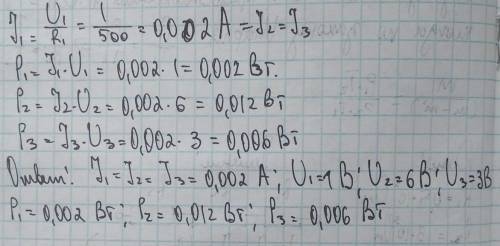 I₁ = U₁/R₁ = 1/500 = 0,002 A = I₂ = I₃
P₁ = I₁·U₁ = 0,002 · 1 = 0,002 Вт.
P₂ = I₂·U₂ = 0,002 · 6 = 0,012 Вт
P₃ = I₃·U₃ = 0,002 · 3 = 0,006 Вт
Ответ: I₁ = I₂ = I₃ = 0,002 A; U₁ = 1 В; U₂ = 6 В; U₃ = 3В
P₁ = 0,002 Вт; P₂ = 0,012 Вт; P₃ = 0,006 Вт